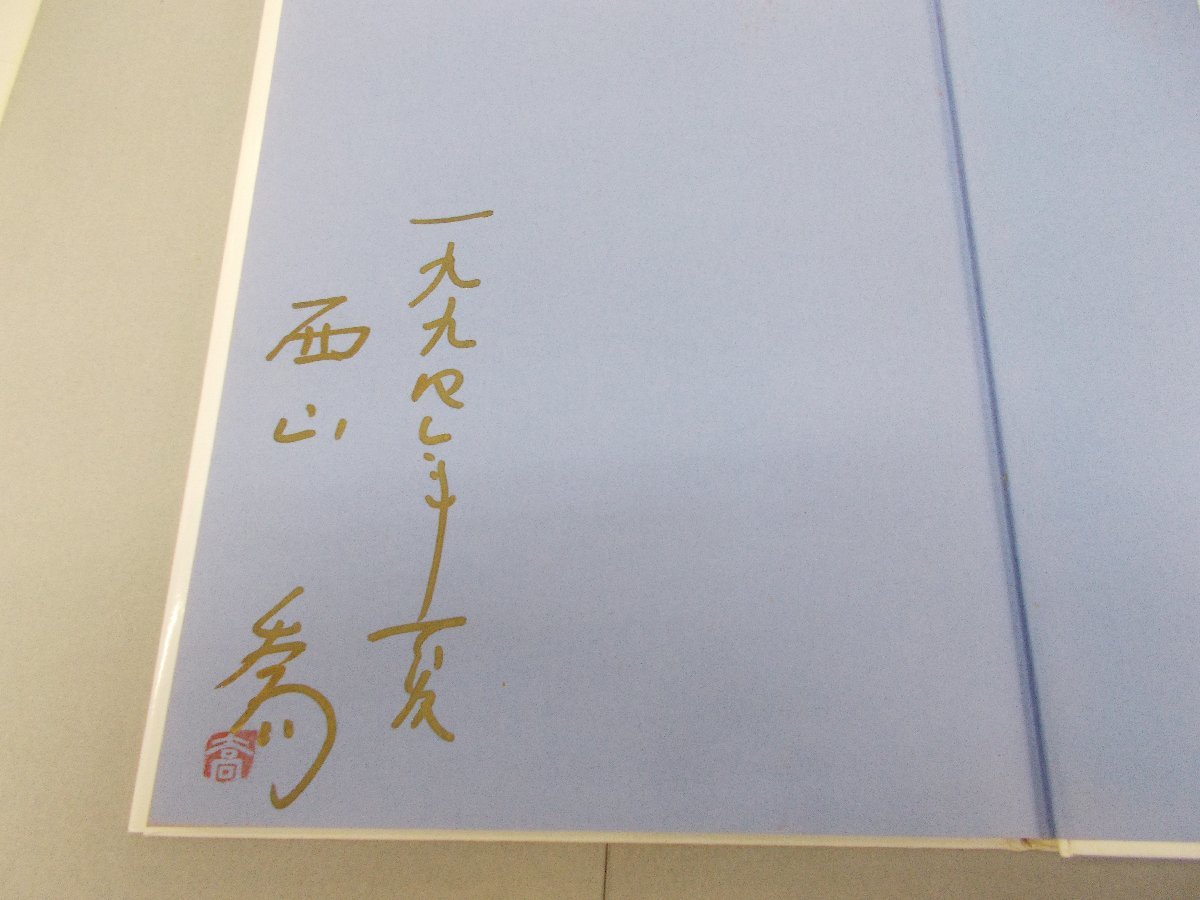 一九九四年夏
西山 喬
喬